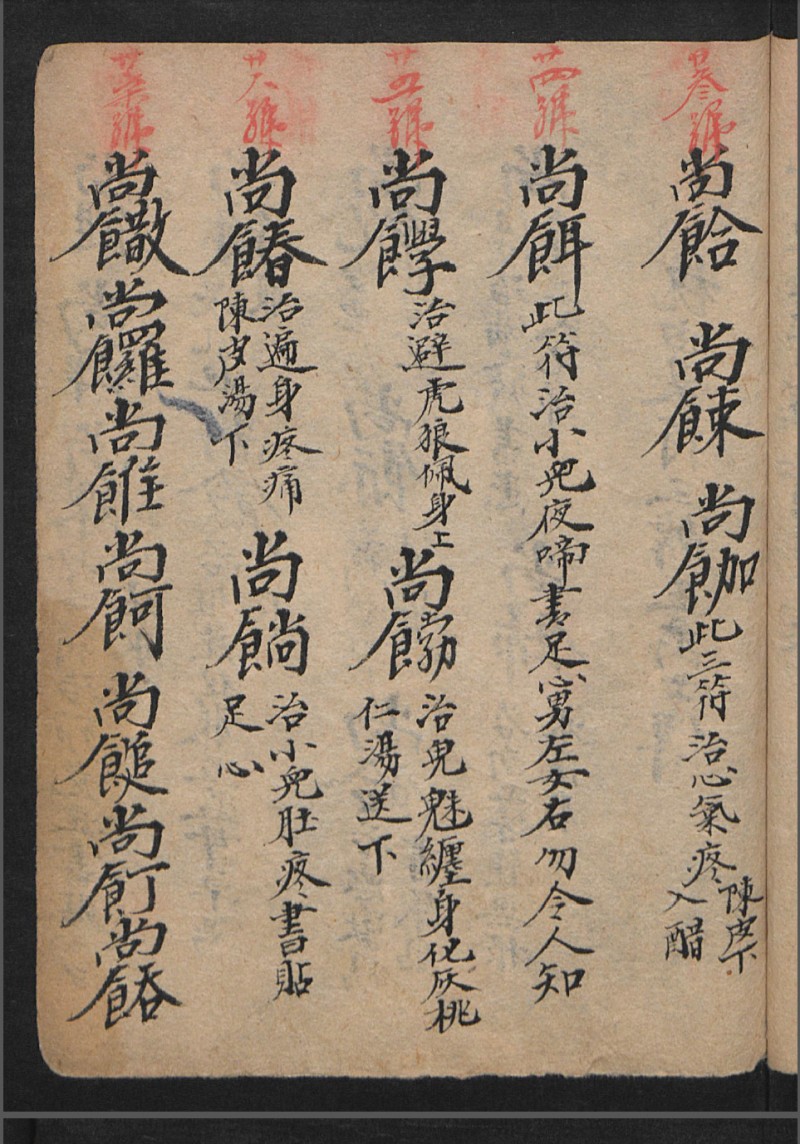 廿叁號
尚飴 尚餗 尚𩚳 此三符治心氣疼 陳皮下 入醋
廿四號
尚餌 此符治小兒夜啼書足心男左女右勿令人知
廿五號
尚 治避虎狼佩身上 尚餑 治鬼魅纏身化灰桃
仁湯送下
廿六號
尚 治遍身疼痛
陳皮湯下
尚 治小兒肚疼書貼
足心
廿柒號
尚 尚饠 尚 尚 尚 尚飣 尚